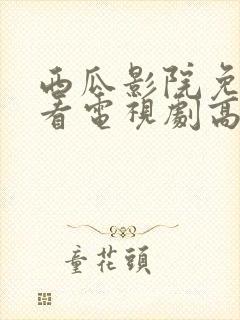 西瓜影院免
看電視劇高
童花頭